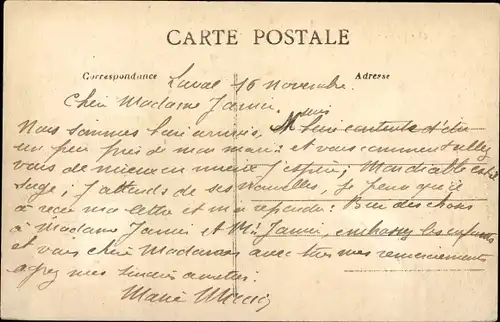 CARTE POSTALE
Correspondance Adresse
Laval 16 Novembre
Chère Madame Jamin
Nous sommes bien arrivés, suis bien contente d'être
un peu près de mon mari: et vous comment allez
vous de mieux en mieux j'espère; Mon diable est il
sage; J'attends de ses nouvelles, je pense qu'il
a reçu ma lettre et me répondra: Bien des choses
à Madame Jamin et Mr Jamin, embrassez les enfants
et vous chère Madame avec tous mes remerciements
agréez mes sincères amitiés.
Marie